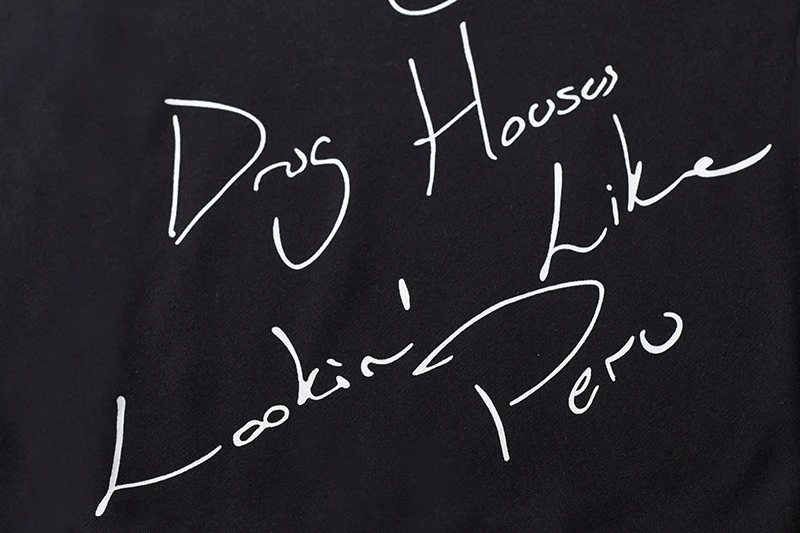 Drug Houses
Lookin' Like
Peru